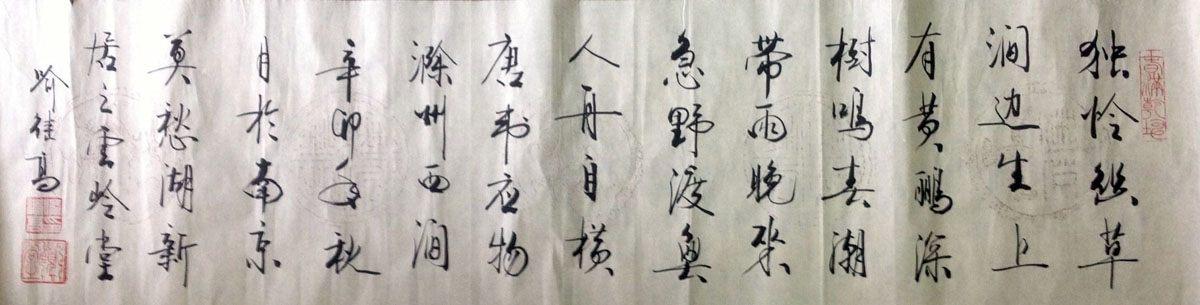 独怜幽草
涧边生上
有黄鹂深
树鸣春潮
带雨晚来
急野渡無
人舟自横
唐韦应物
滁州西涧
辛卯年秋
月於南京
莫愁湖新
居之雲堂
高